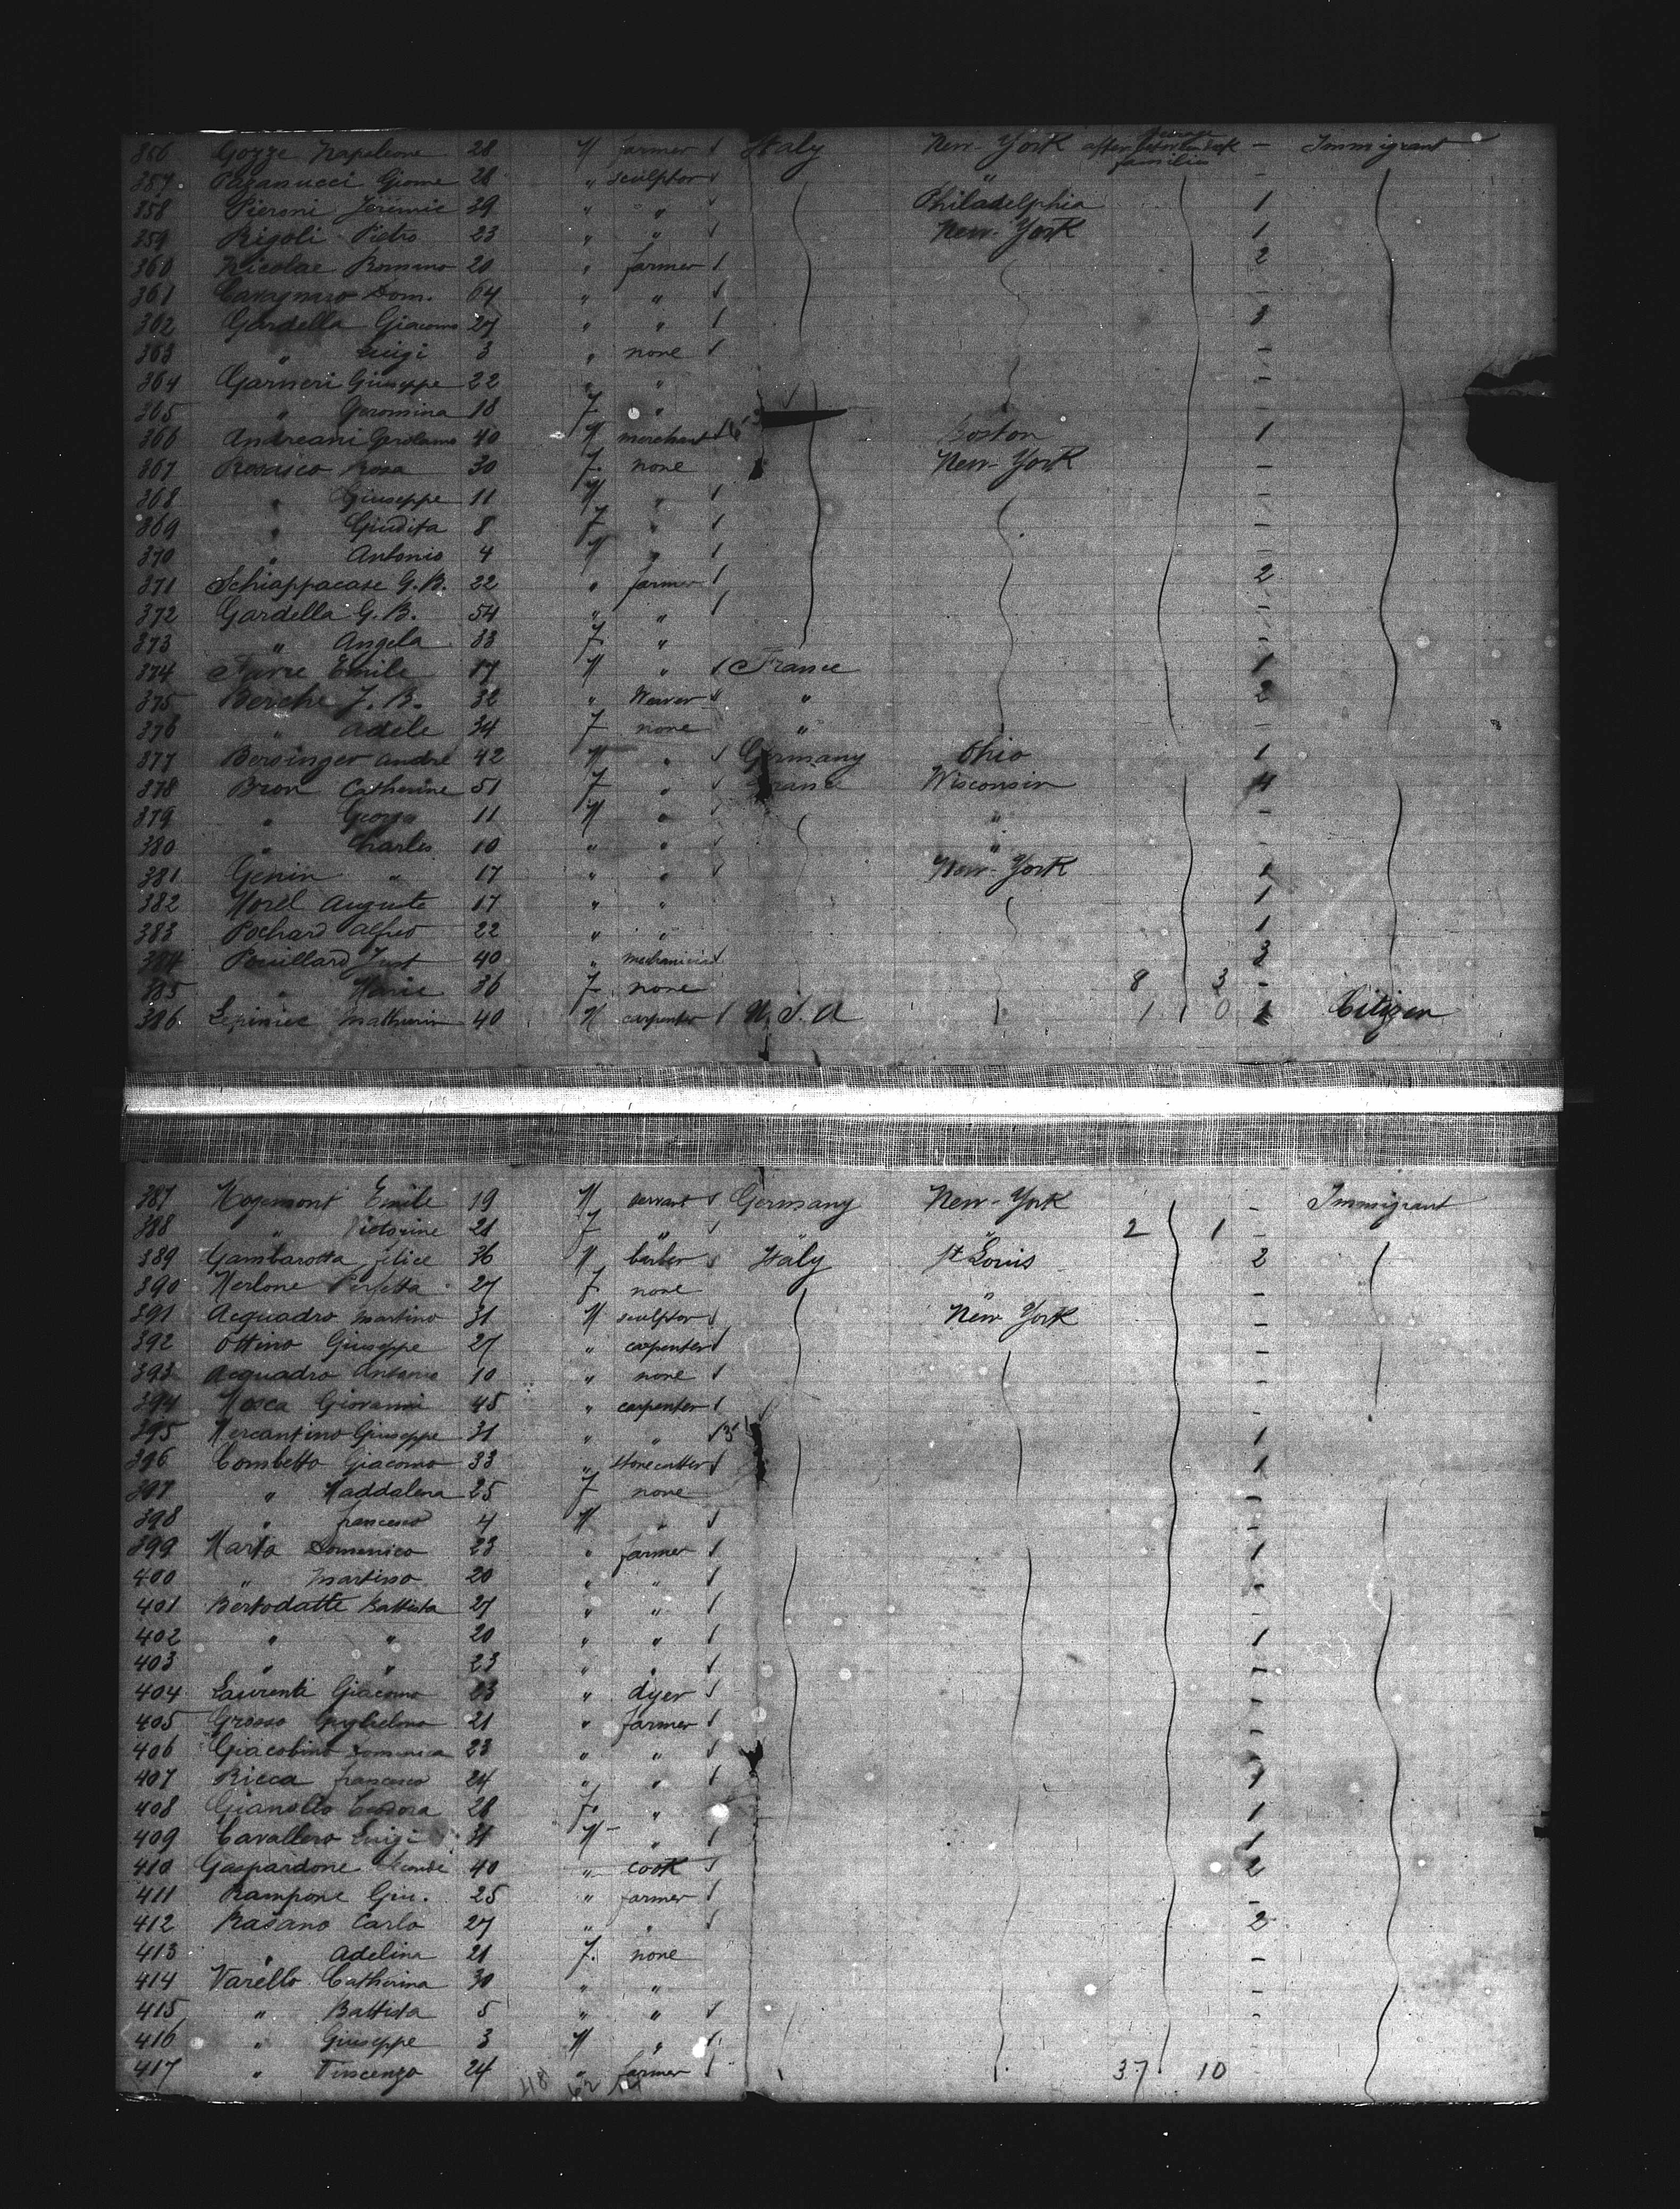 356 Gozze Napoleone 28 M farmer Italy New-York after between deck families — Immigrant
357 Paganucci Giome 28 " sculptor " —
358 Pieroni Jérémie 39 " " Philadelphia 1
359 Rigoli Pietro 23 " " New-York 1
360 Nicolae Romano 20 " farmer 2
361 Cavagnaro Dom. 64 " " —
362 Gardella Giacomo 27 " " 1
363 " Luigi 3 " none —
364 Garneri Giuseppe 22 " " —
365 " Geromina 18 F " —
366 Andreani Gerolamo 40 M merchant Boston 1
367 Rosasco Rosa 30 F. none New-York —
368 " Giuseppe 11 M " —
369 " Giudita 8 F " —
370 " Antonio 4 M " —
371 Schiappacase G. B. 22 " farmer 2
372 Gardella G. B. 54 " " —
373 " Angela 33 F " —
374 Favre Emile 17 M " France 1
375 Berche J. B. 32 " Weaver " 2
376 " Adèle 34 F none " —
377 Bersinger André 42 M " Germany Ohio 1
378 Bron Catherine 51 F " France Wisconsin 4
379 " George 11 M " " —
380 " Charles 10 " " " —
381 Genin " 17 " " New-York 1
382 Morel Auguste 17 " " 1
383 Pochard Alfred 22 " " 1
384 Pouillard Just 40 " mechanician 3
385 " Marie 36 F none 8 3 —
386 Mathurin 40 M carpenter U.S.A 1 0 1 Citizen
387 Hogemont Emile 19 M servant Germany New-York — Immigrant
388 " Victorine 21 F " " " 2 1 —
389 Gambarotta Felice 36 M barber Italy St Louis 2
390 Merlone Perfetta 27 F none " —
391 Acquadro Martino 31 M sculptor New York —
392 Ottino Giuseppe 27 " carpenter —
393 Acquadro Antonio 10 " none —
394 Mosca Giovanni 45 " carpenter —
395 Mercantino Giuseppe 31 " " 1
396 Combetto Giacomo 33 " stonecutter 1
397 " Maddalena 25 F none —
398 " francesco 4 M " —
399 Marta Domenico 23 " farmer 1
400 " Martino 20 " " —
401 Bertodatte Battista 27 " " —
402 " " 20 " " 1
403 " " 23 " " —
404 Laurenti Giacomo 23 " dyer —
405 Grosso Guglielmo 21 " farmer —
406 Giacobino Domenica 23 " " —
407 Ricca francesco 24 " " 1
408 Gianotto Teodora 28 F. " 1
409 Cavallero Luigi 31 M " 1
410 Gaspardone 40 " cook 2
411 Rampone Giu. 25 " farmer —
412 Rasano Carlo 27 " " 2
413 " Adelina 21 F. none —
414 Varello Catherina 30 " " —
415 " Battista 5 " " —
416 " Giuseppe 3 M " —
417 " Vincenzo 24 " farmer 37 10 —